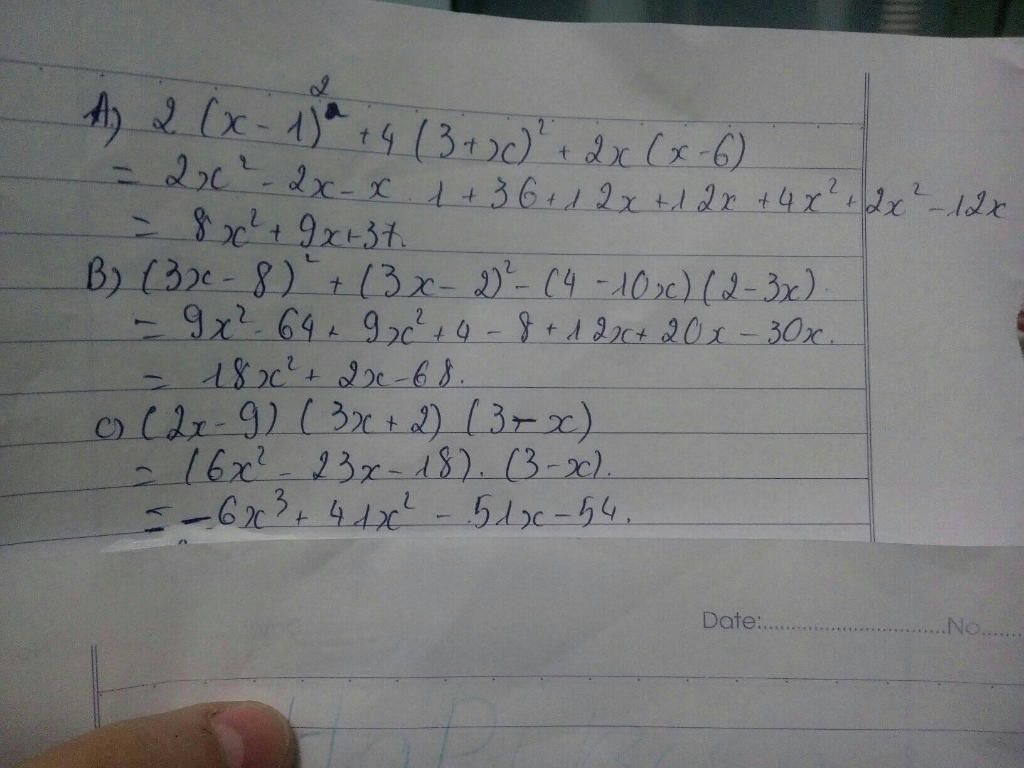 A) 2 (x - 1)² + 4 (3 + x)² + 2x (x - 6)
= 2x² - 2x - x . 1 + 36 + 12x + 12x + 4x² + 2x² - 12x
= 8x² + 9x + 37.
B) (3x - 8)² + (3x - 2)² - (4 - 10x) (2 - 3x).
= 9x² - 64 + 9x² + 4 - 8 + 12x + 20x - 30x.
= 18x² + 2x - 68.
c) (2x - 9) (3x + 2) (3 - x)
= (6x² - 23x - 18) . (3 - x).
= -6x³ + 41x² - 51x - 54.
Date:..............................No.......